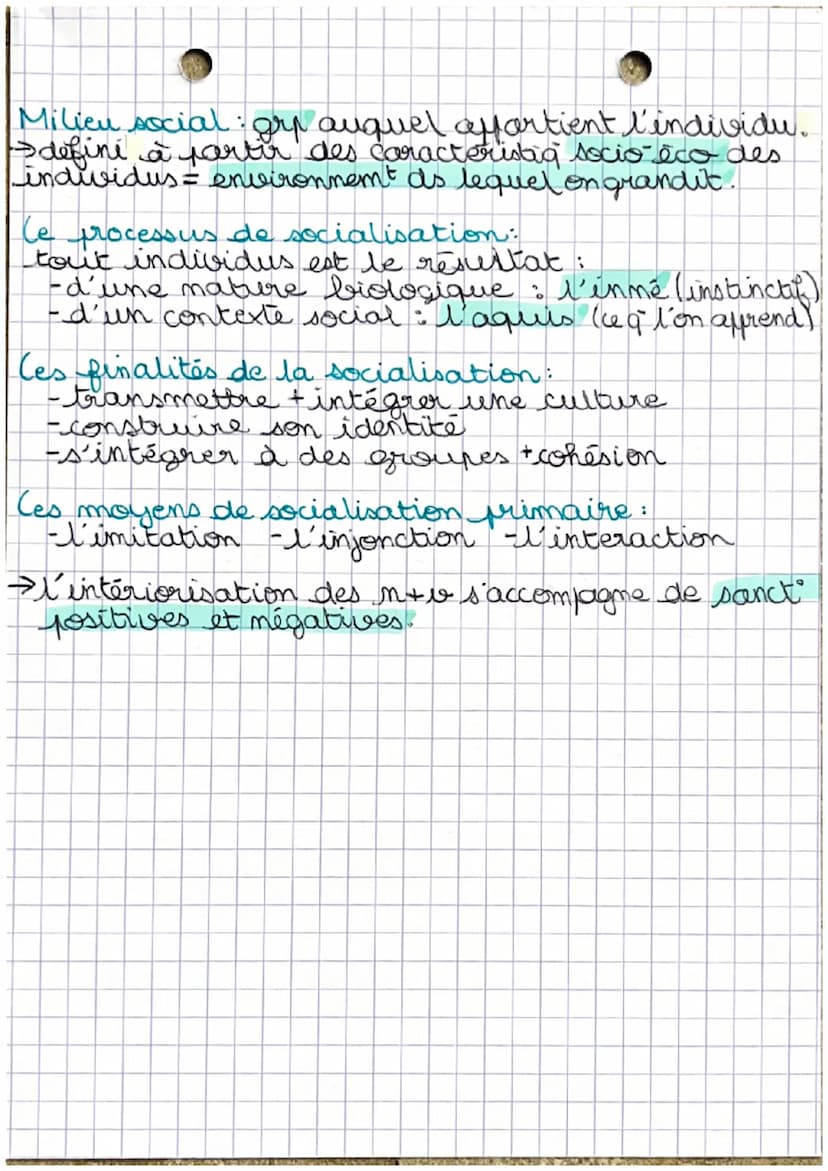 Milieu social : grp auquel appartient l'individu.
→défini à partir des caractéristiq socio-éco des
individus = environnemt ds lequel on grandit.
Le processus de socialisation :
tout individus est le résultat :
-d'une nature biologique : l'inné (instinctif)
-d'un contexte social : l'aquis (ce q l'on apprend)
Les finalités de la socialisation :
-transmettre + intégrer une culture
-construire son identité
-s'intégrer à des groupes + cohésion
Les moyens de socialisation primaire :
-l'imitation -l'injonction -l'interaction
→l'intériorisation des n+v s'accompagne de sanct°
positives et négatives.